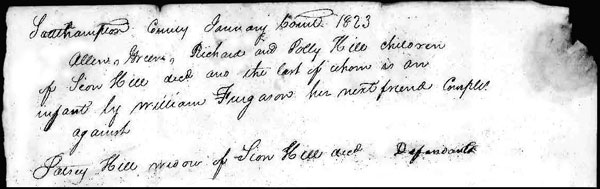 Southampton County January Court 1823
Allen, Green, Richard and Polly Hill children
of Sion Hill decd and the last of whom is an
infant by William Furgason her next friend Complts
against
Patsey Hill widow of Sion Hill decd Defendants